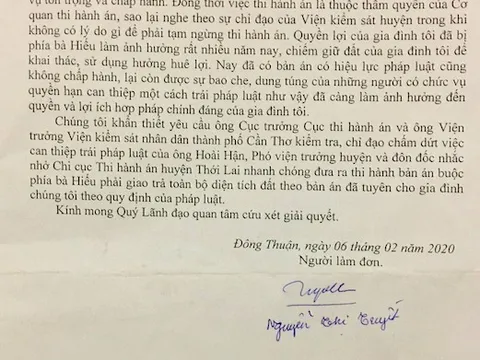 vụ tôn trọng và chấp hành. Đồng thời việc thi hành án là thuộc thẩm quyền của Cơ
quan thi hành án, sao lại nghe theo sự chỉ đạo của Viện kiểm sát huyện trong khi
không có lý do gì để phải tạm ngừng thi hành án. Quyền lợi của gia đình tôi đã bị
phía bà Hiếu làm ảnh hưởng rất nhiều năm nay, chiếm giữ đất của gia đình tôi để
khai thác, sử dụng hưởng huê lợi. Nay đã có bản án có hiệu lực pháp luật cũng
không chấp hành, lại còn được sự bao che, dung túng của những người có chức vụ
quyền hạn can thiệp một cách trái pháp luật như vậy đã càng làm ảnh hưởng đến
quyền và lợi ích hợp pháp chính đáng của gia đình tôi.
Chúng tôi khẩn thiết yêu cầu ông Cục trưởng Cục thi hành án và ông Viện
trưởng Viện kiểm sát nhân dân thành phố Cần Thơ kiểm tra, chỉ đạo chấm dứt việc
can thiệp trái pháp luật của ông Hoài Hận, Phó viện trưởng huyện và đôn đốc nhắc
nhở Chi cục Thi hành án huyện Thới Lai nhanh chóng đưa ra thi hành bản án buộc
phía bà Hiếu phải giao trả toàn bộ diện tích đất theo bản án đã tuyên cho gia đình
chúng tôi theo quy định của pháp luật.
Kính mong Quý Lãnh đạo quan tâm cứu xét giải quyết.
Đông Thuận, ngày 06 tháng 02 năm 2020
Người làm đơn.
Nguyễn Thị Tuyết